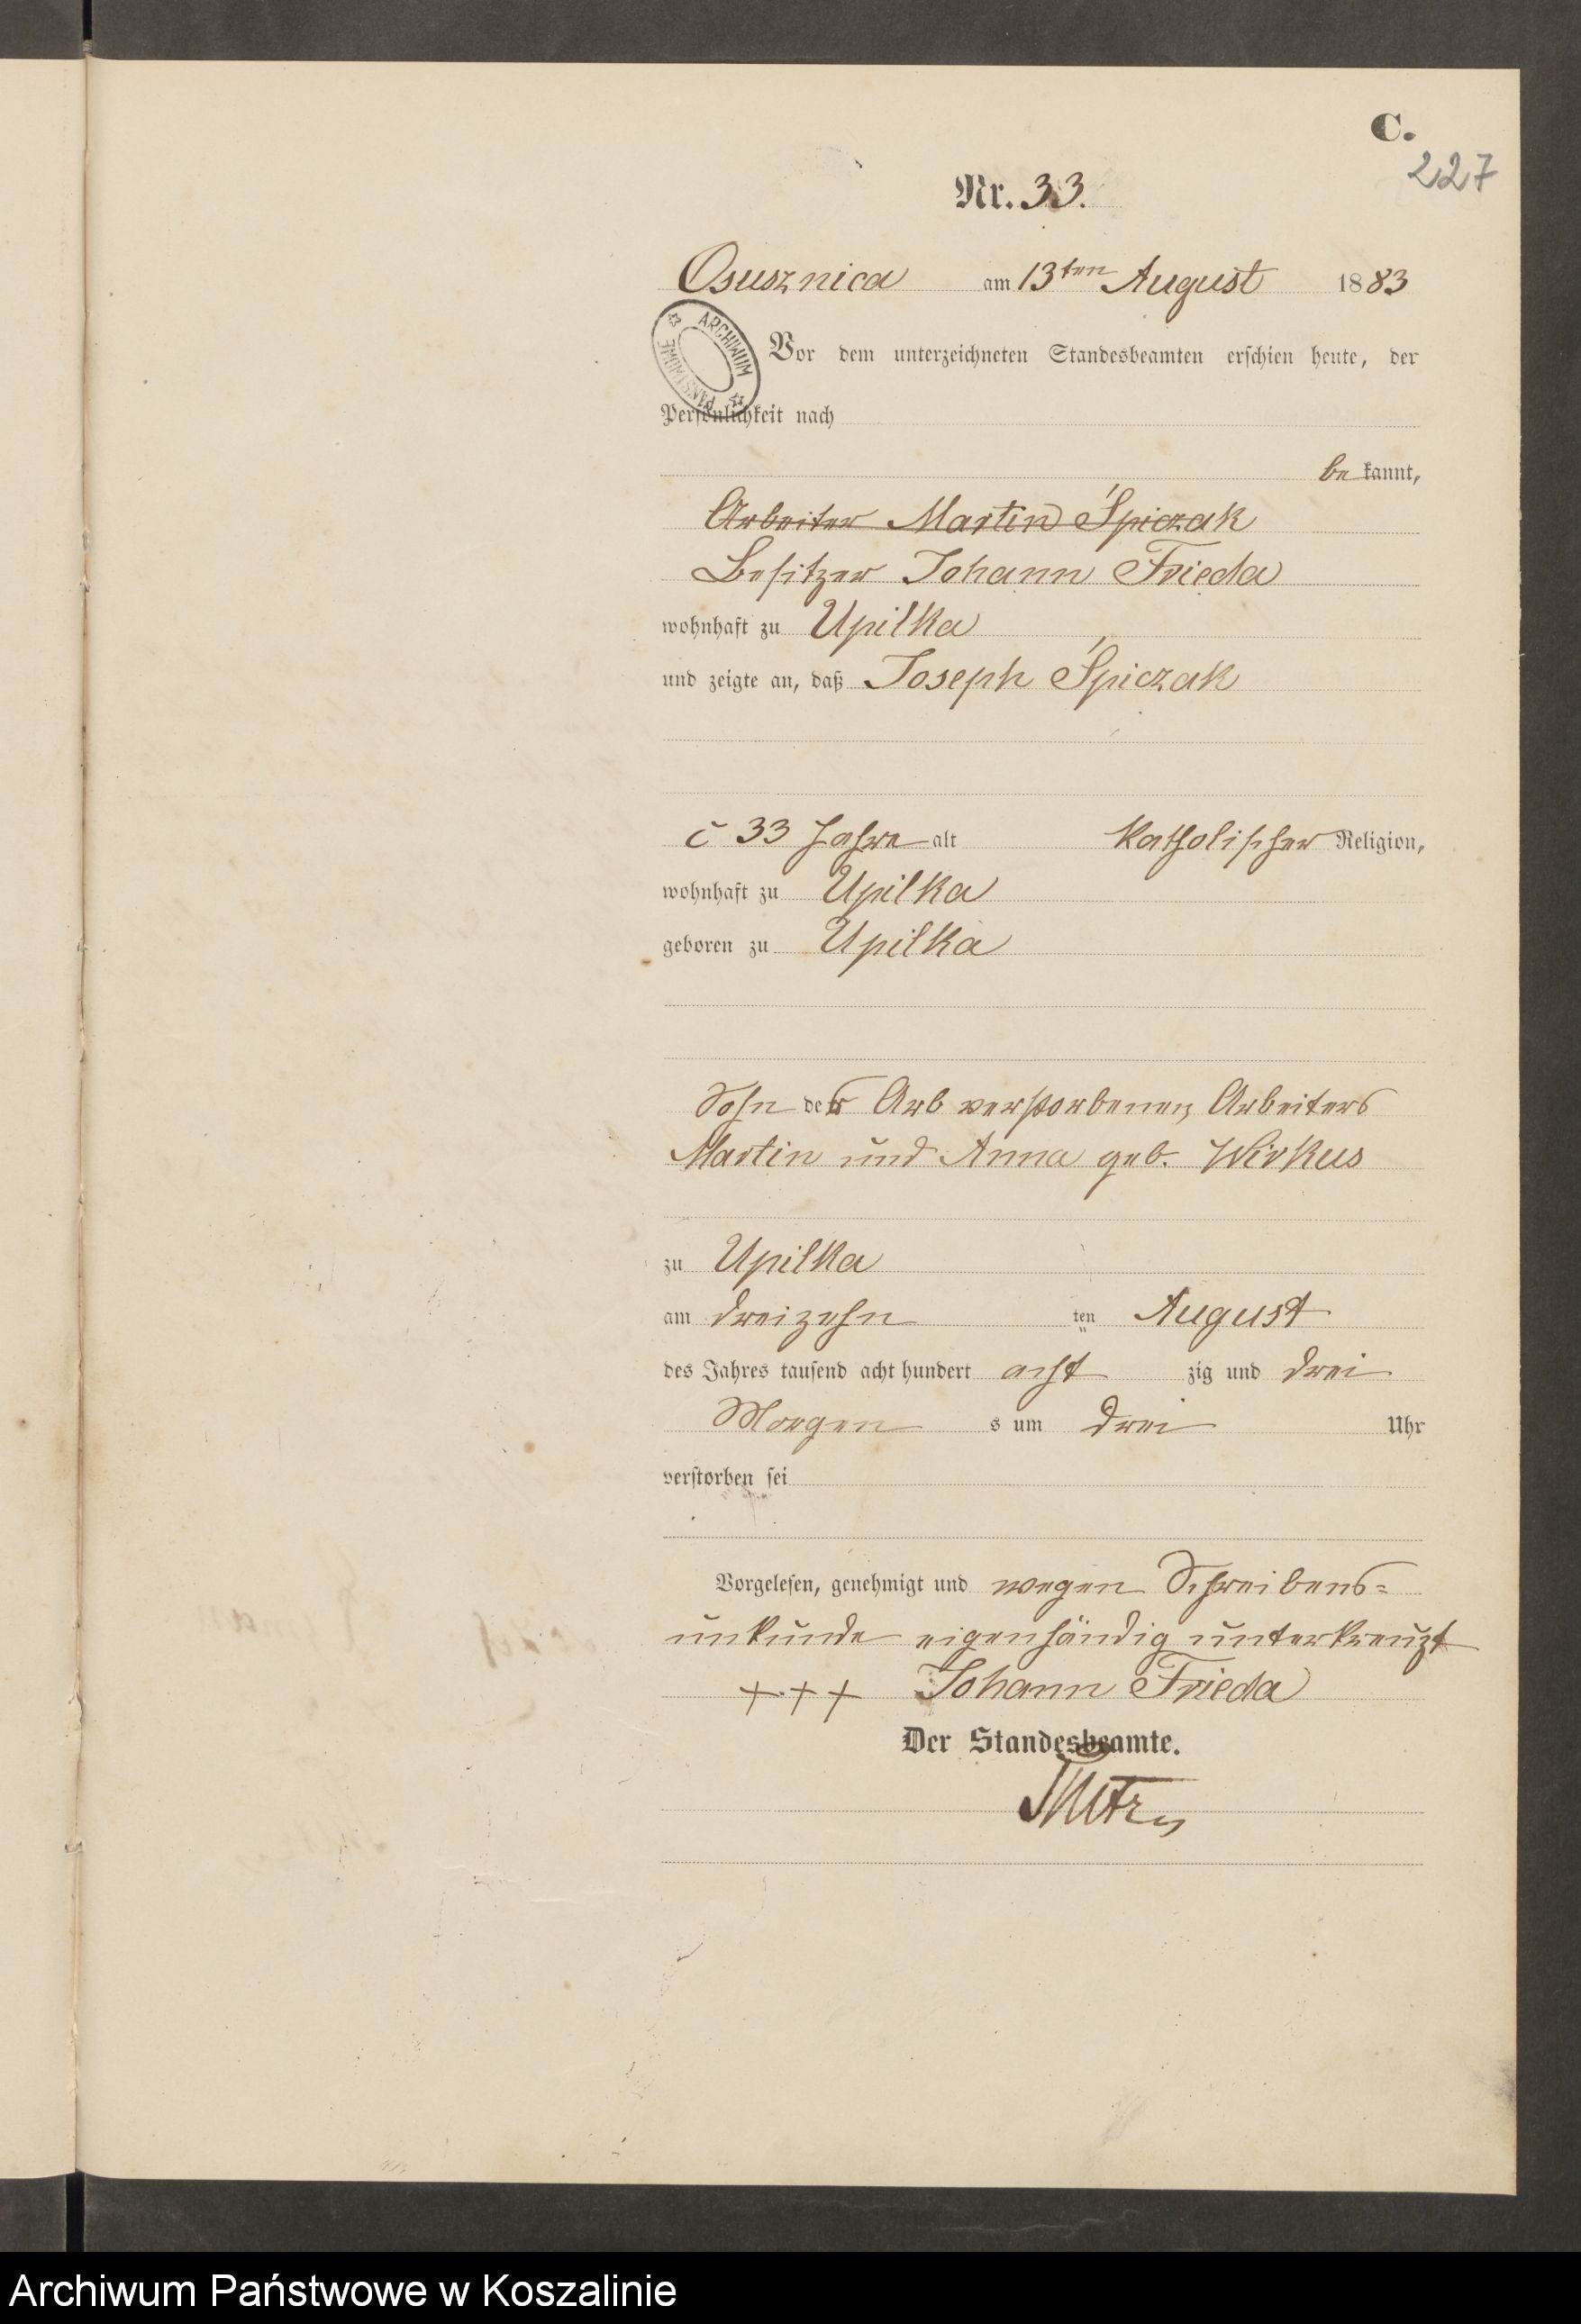 C.
227
Nr. 33.
Osusznica am 13ten August 1883
ARCHIWUM PAŃSTWOWE
Vor dem unterzeichneten Standesbeamten erschien heute, der
Persönlichkeit nach
be kannt,
Arbeiter Martin Śpiczak
Besitzer Johann Frieda
wohnhaft zu Upilka
und zeigte an, daß Joseph Śpiczak
c 33 Jahre alt katholischer Religion,
wohnhaft zu Upilka
geboren zu Upilka
Sohn des Arb verstorbenen Arbeiters
Martin und Anna geb. Wirkus
zu Upilka
am dreizehn ten August
des Jahres tausend acht hundert acht zig und drei
Morgen s um drei Uhr
verstorben sei
Vorgelesen, genehmigt und wegen Schreibens=
unkunde eigenhändig unterkreuzt
+++ Johann Frieda
Der Standesbeamte.
Archiwum Państwowe w Koszalinie